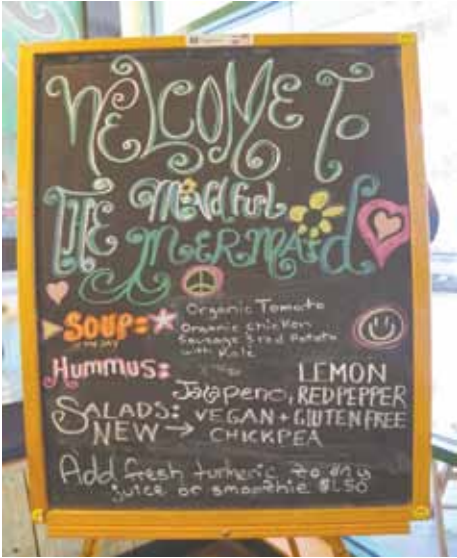 WELCOME TO
THE MiNdfuL
MERMAid
SOUP:
OF THE DAY
Organic Tomato
Organic chicken
Sausage & red Potato
with Kale
Hummus:
LEMON
Jalapeno, RED PEPPER
SALADS: VEGAN + GLUTEN FREE
NEW → CHICKPEA
Add fresh turmeric to any
juice or smoothie $1.50